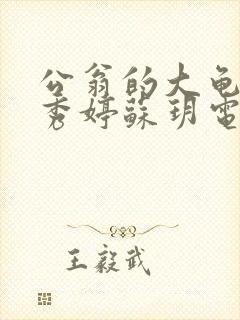 公翁的大龟
秀婷蘇玥電
王毅武